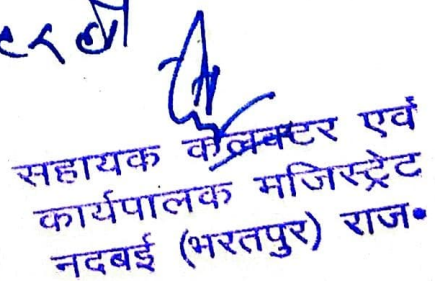 सहायक कलक्टर एवं
कार्यपालक मजिस्ट्रेट
नदबई (भरतपुर) राज॰